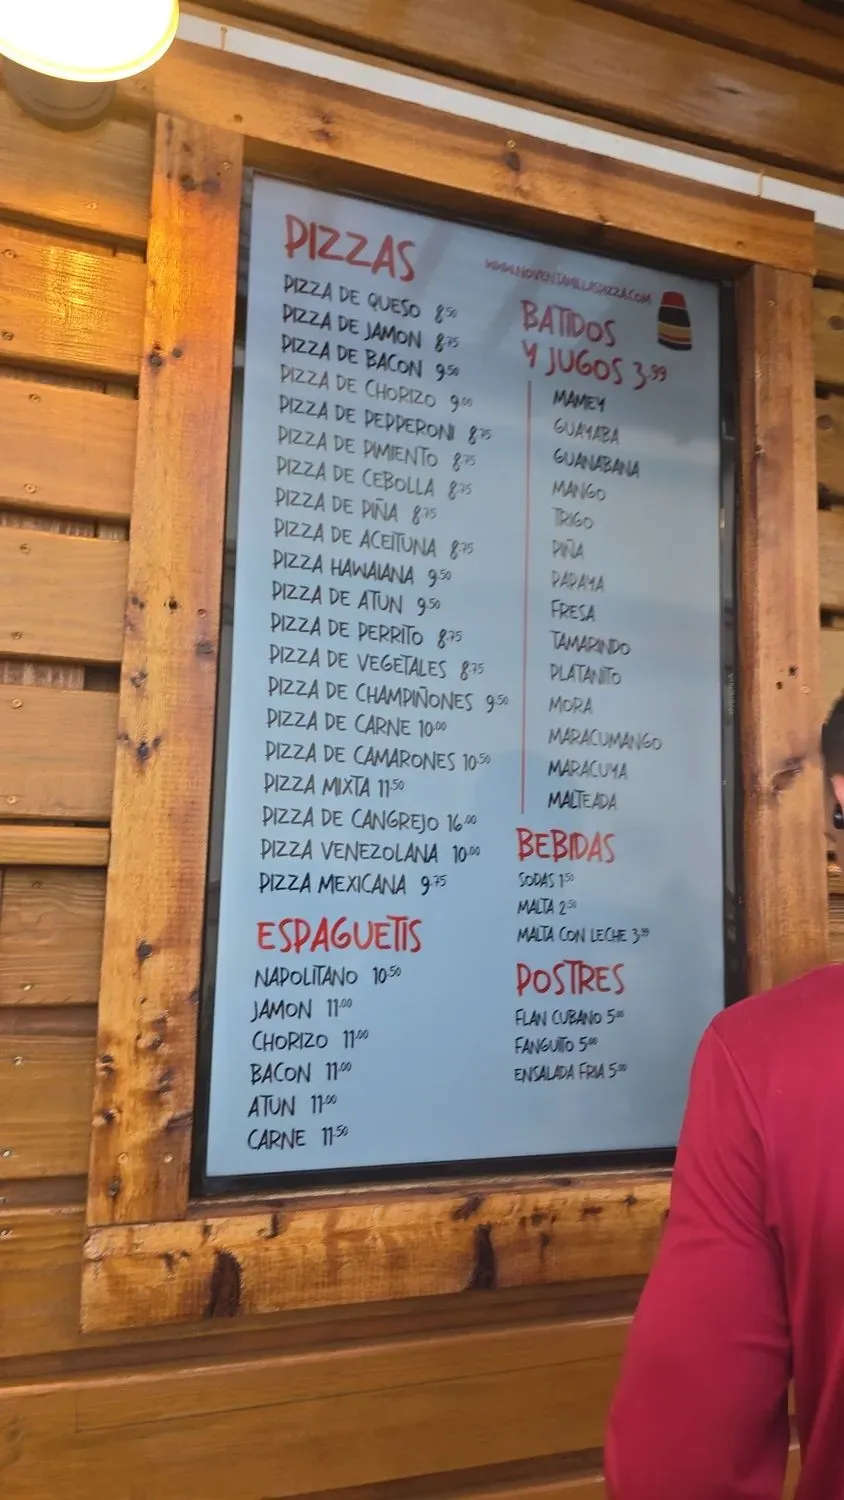 PIZZAS
PIZZA DE QUESO 8.50
PIZZA DE JAMON 8.75
PIZZA DE BACON 9.50
PIZZA DE CHORIZO 9.00
PIZZA DE PEPPERONI 8.75
PIZZA DE PIMIENTO 8.75
PIZZA DE CEBOLLA 8.75
PIZZA DE PIÑA 8.75
PIZZA DE ACEITUNA 8.75
PIZZA HAWAIANA 9.50
PIZZA DE ATUN 9.50
PIZZA DE PERRITO 8.75
PIZZA DE VEGETALES 8.75
PIZZA DE CHAMPIÑONES 9.50
PIZZA DE CARNE 10.00
PIZZA DE CAMARONES 10.50
PIZZA MIXTA 11.50
PIZZA DE CANGREJO 16.00
PIZZA VENEZOLANA 10.00
PIZZA MEXICANA 9.75
ESPAGUETIS
NAPOLITANO 10.50
JAMON 11.00
CHORIZO 11.00
BACON 11.00
ATUN 11.00
CARNE 11.50
WWW.NOVENTAMILLASPIZZA.COM
BATIDOS
Y JUGOS 3.99
MAMEY
GUAYABA
GUANABANA
MANGO
TRIGO
PIÑA
PAPAYA
FRESA
TAMARINDO
PLATANITO
MORA
MARACUMANGO
MARACUYA
MALTEADA
BEBIDAS
SODAS 1.50
MALTA 2.50
MALTA CON LECHE 3.99
POSTRES
FLAN CUBANO 5.00
FANGUITO 5.00
ENSALADA FRIA 5.00